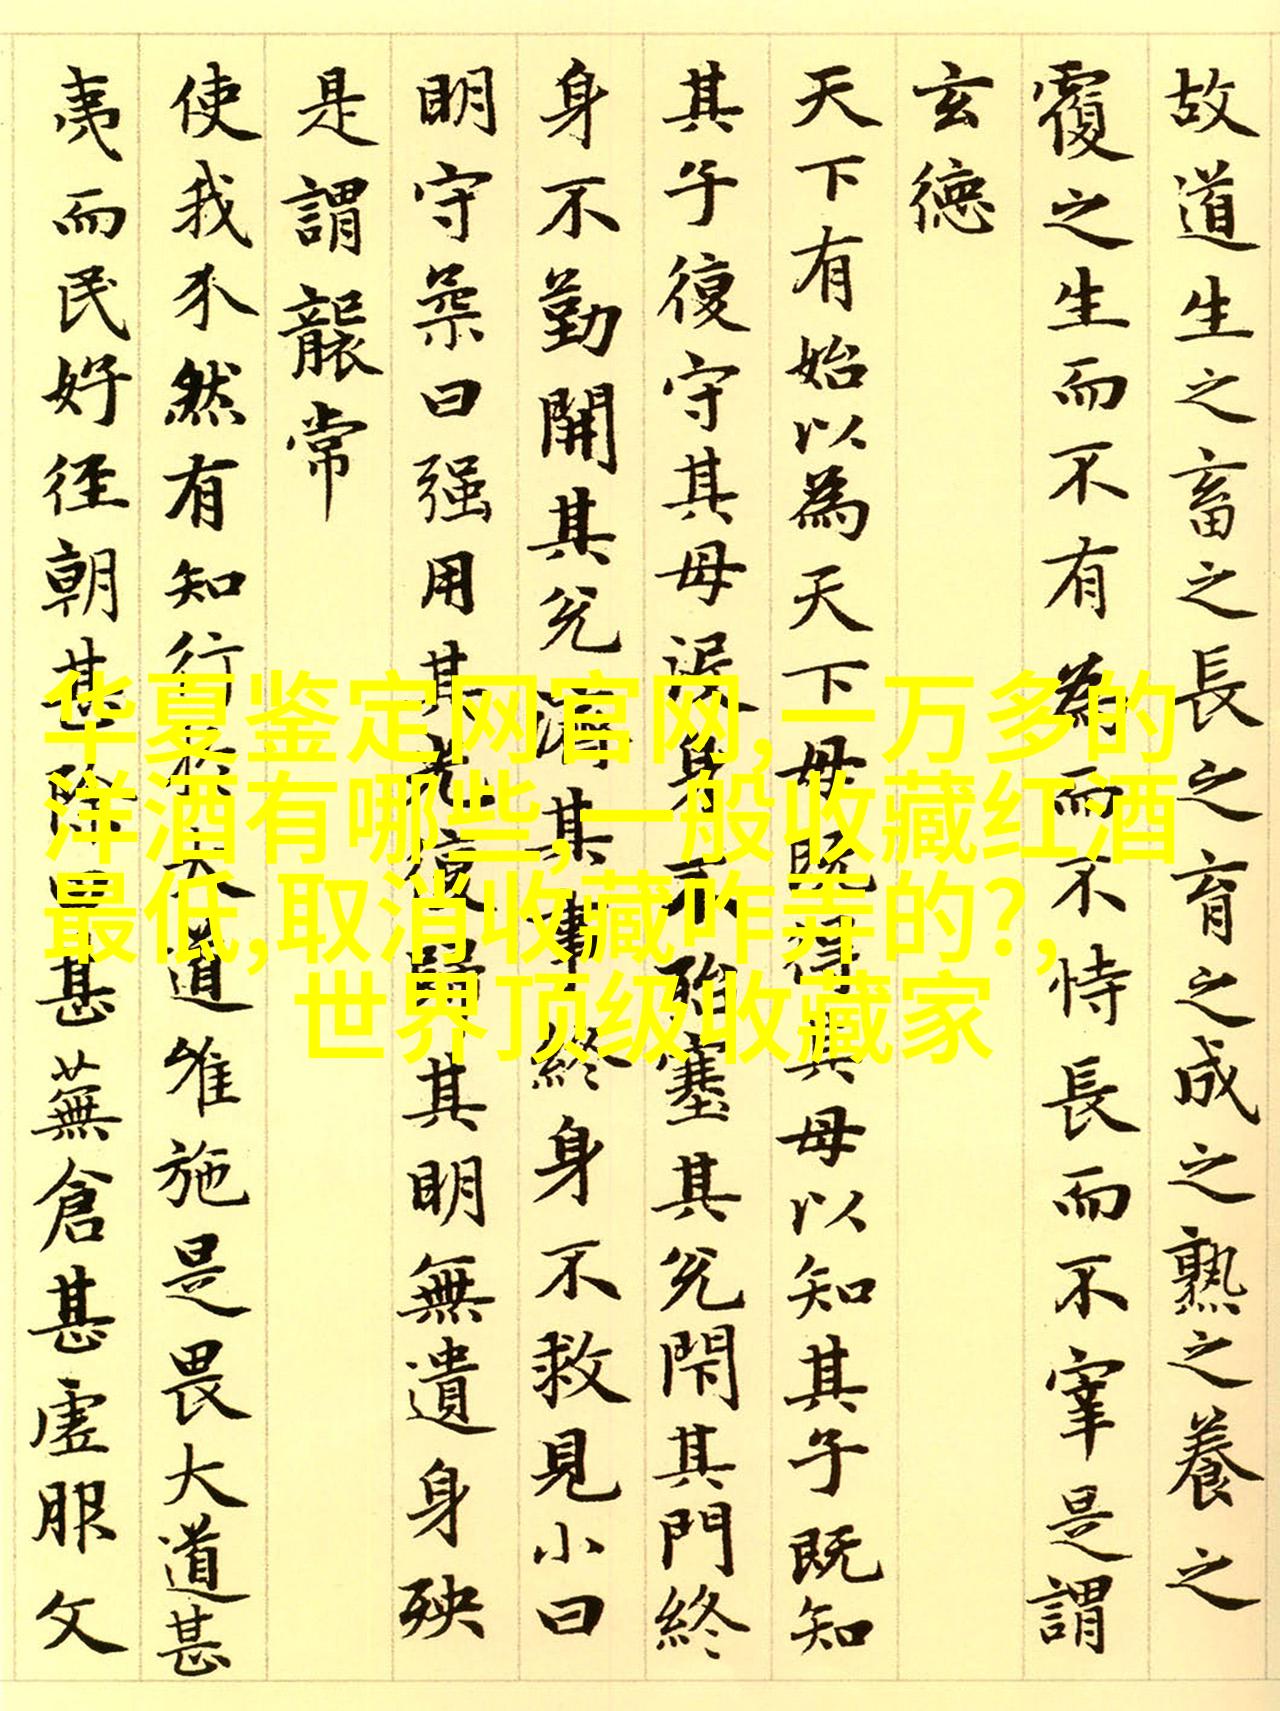 故道生之畜之長之育之成之熟之養之
覆之生而不有為而不恃長而不宰是謂
玄德
天下有始以為天下母既得其母以知其子既知
其子復守其母沒身不殆塞其兌閇其門終
身不勤開其兌濟其事終身不救見小曰
明守柔曰强用其光復歸其明無遺身殃
是謂襲常
使我不然有知行於大道唯施是畏大道甚
夷而民好徑朝甚除田甚蕪倉甚虛服文
华夏鉴定网官网,一万多的
洋酒有哪些,一般收藏红酒
最低,取消收藏咋弄的?,
世界顶级收藏家